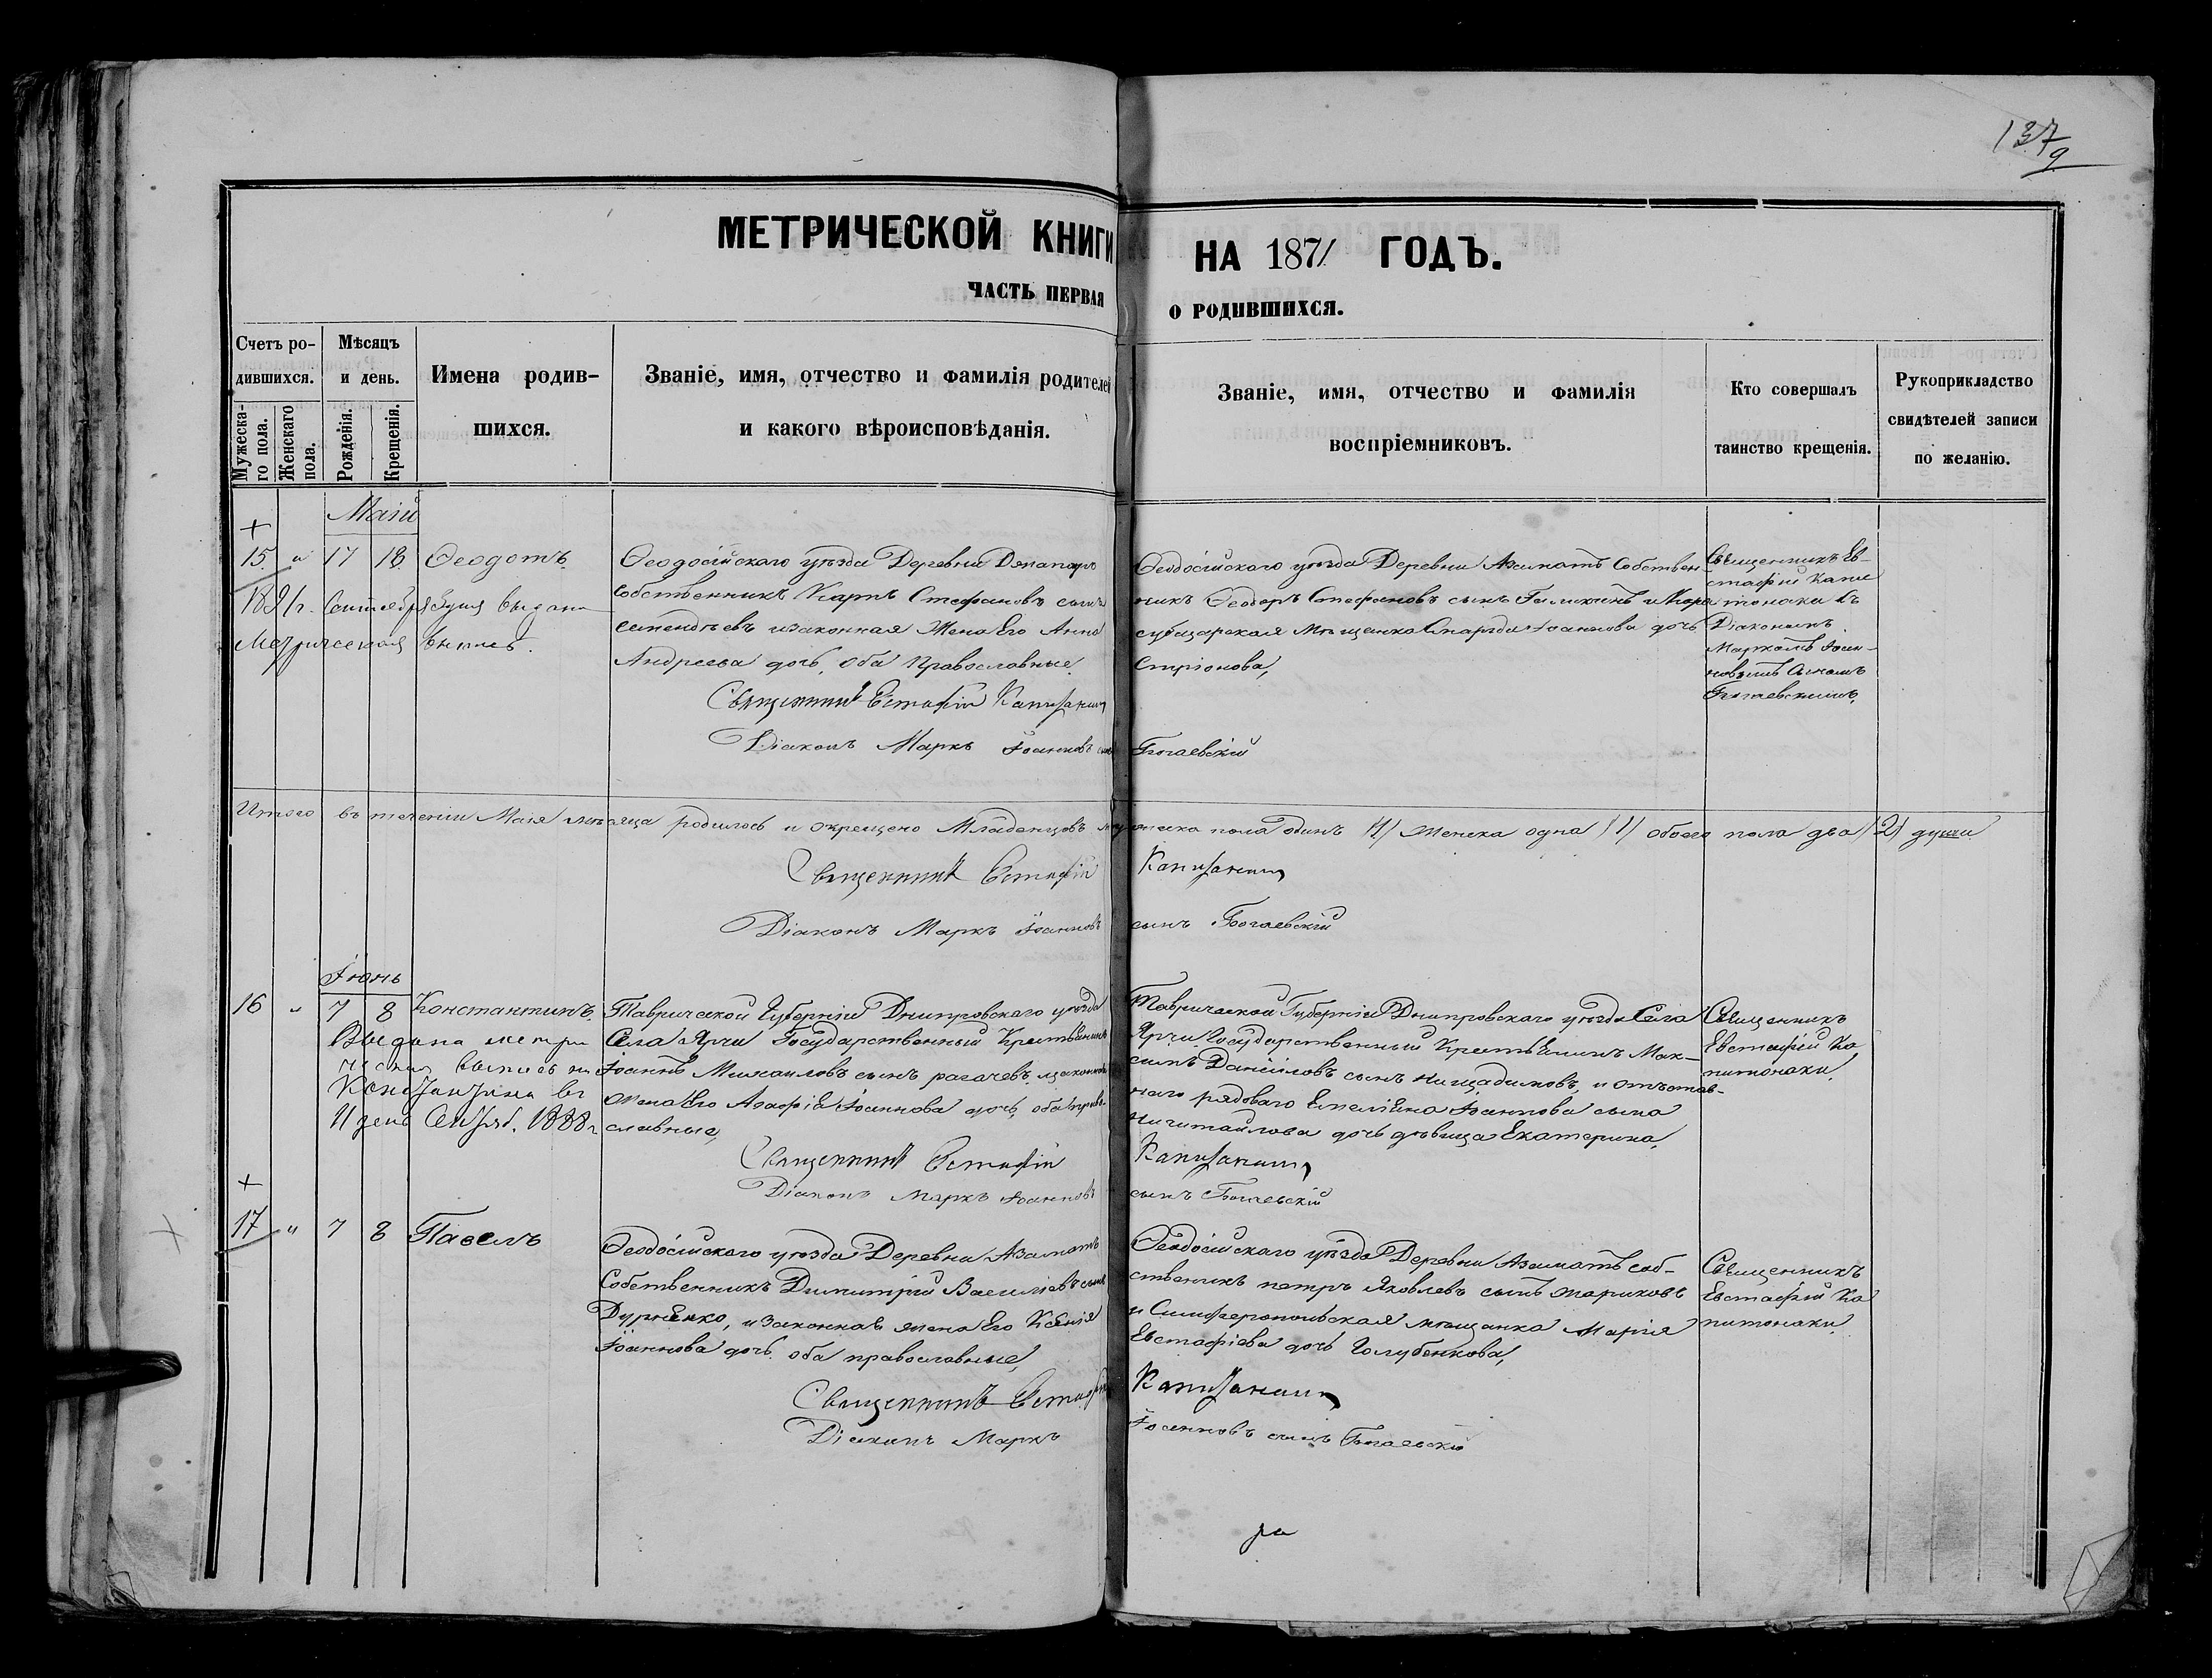 137
9
МЕТРИЧЕСКОЙ КНИГИ НА 1871 ГОДЪ.
ЧАСТЬ ПЕРВАЯ О РОДИВШИХСЯ.
Счетъ ро-
дившихся.
Мужеска-
го пола.
Женскаго
пола.
Мѣсяцъ
и день.
Рожденія.
Крещенія.
Имена родив-
шихся.
Званіе, имя, отчество и фамилія родителей
и какого вѣроисповѣданія.
Званіе, имя, отчество и фамилія
воспріемниковъ.
Кто совершалъ
таинство крещенія.
Рукоприкладство
свидѣтелей записи
по желанію.
Маій
15 " 17 18 Ѳеодотъ
1891 г. Сентября выдана
метрическая выпись.
Ѳеодосійскаго уѣзда Деревни
Собственникъ Карпъ Стефановъ сынъ
и законная Жена Его Анна
Андреева дочь, оба Православные
Священникъ Евстафій Капитанаки
Діаконъ Маркъ Іоанновъ сынъ Богаевскій
Ѳеодосійскаго уѣзда Деревни Азаматъ Собствен-
никъ Ѳеодоръ Стефановъ сынъ и Кара-
субазарская Мѣщанка Іоаннова дочь
Спиріонова,
Священникъ Ев-
стафій Капи
тонаки съ
Діакономъ
Маркомъ Іоан-
новымъ Сыномъ
Богаевскимъ.
Итого въ теченіи Маія мѣсяца родилось и окрещено Младенцовъ мужеска пола одинъ /1/ Женска одна /1/ обоего пола два /2/ души
Священникъ Евстафій Капитанаки
Діаконъ Маркъ Іоанновъ сынъ Богаевскій
Іюнь
16 " 7 8 Константинъ.
Выдана метри
ческая выпись на
Константина въ
11 день Октяб. 1888 г
Таврической Губерніи Днипровскаго уѣзда
Села Государственный Крестьянинъ
Іоаннъ Михаиловъ сынъ рагачевъ, и законная
жена Его Агафія Іоаннова дочь, оба право-
славные,
Священникъ Евстафій Капитанаки
Діаконъ Маркъ Іоанновъ сынъ Богаевскій
Таврической Губерніи Днипровскаго уѣзда Села
Государственный Крестьянинъ Мак-
симъ Даніиловъ сынъ и отъстав-
наго рядоваго Емеліяна Іоаннова сына
дочь дѣвица Екатерина,
Священникъ
Евстафій Ка
питонаки.
17 " 7 8 Павелъ
Ѳеодосійскаго уѣзда Деревни Азаматъ
Собственникъ Димитрій Василіевъ сынъ
Дурненко, и законная жена Его Ксенія
Іоаннова дочь оба православные,
Священникъ Евстафій Капитанаки
Діаконъ Маркъ Іоанновъ сынъ Богаевскій
Ѳеодосійскаго уѣзда Деревни Азаматъ соб-
ственникъ петръ Яковлевъ сынъ Жариковъ
и Симферопольская мѣщанка Марія
Евстафіева дочь Голубенкова,
Священникъ
Евстафій Ка
питонаки.